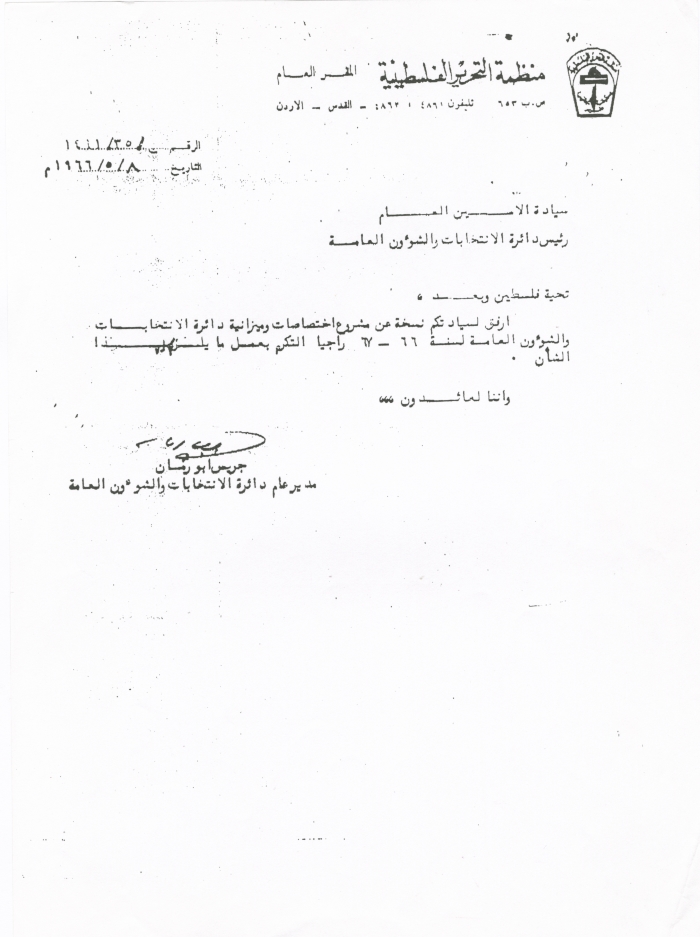 منظمة التحرير الفلسطينية المقر العام
ص.ب ٦٥٣ تليفون ٤٨٦١ ، ٤٨٦٢ – القدس – الاردن
الرقم
التاريخ ٨/٥/١٩٦٦م
سيادة الامين العام
رئيس دائرة الانتخابات والشوءون العامة
تحية فلسطين وبعد ،
ارفق لسيادتكم نسخة عن مشروع اختصاصات وميزانية دائرة الانتخابات
والشوءون العامة لسنة ٦٦ – ٦٧ راجيا التكرم بعمل ما يلزم بهذا
الشأن .
واننا لعائدون ،،،
جريس ابو رشان
مدير عام دائرة الانتخابات والشوءون العامة